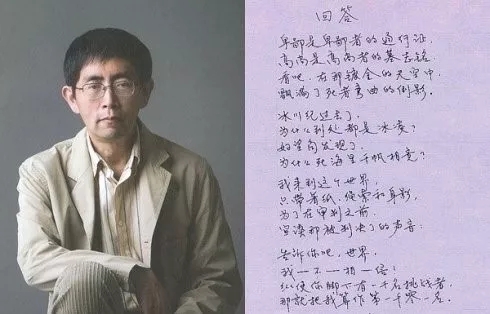 回答
卑鄙是卑鄙者的通行证
高尚是高尚者的墓志铭
看吧，在那镀金的天空中，
飘满了死者弯曲的倒影。
冰川纪过去了，
为什么到处都是冰凌？
好望角发现了，
为什么死海里千帆相竞？
我来到这个世界，
只带着纸、绳索和身影，
为了在审判之前，
宣读那被判决了的声音：
告诉你吧，世界，
我—不—相—信！
纵使你脚下有一千名挑战者，
那就把我算作第一千零一名。